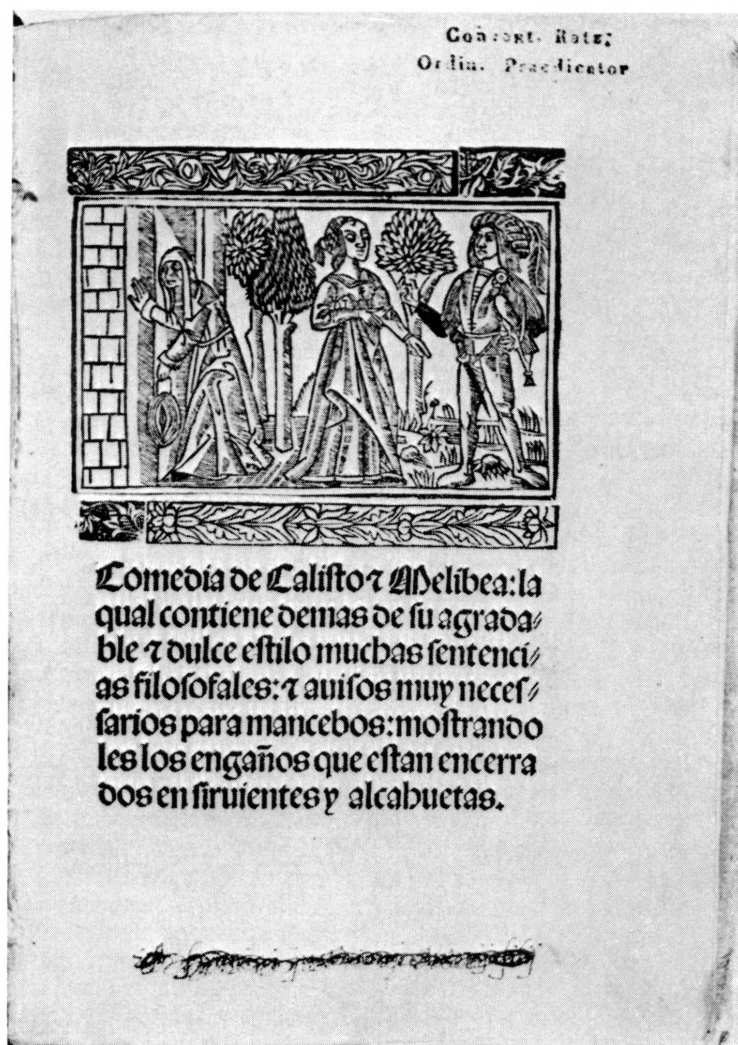 Conuent. Ratz;
Ordin. Praedicator
Comedia de Caliſto ⁊ Melibea: la
qual contiene demas de ſu agrada⸗
ble ⁊ dulce eſtilo muchas ſentenci⸗
as filoſofales: ⁊ auiſos muy neceſ⸗
ſarios para mancebos: moſtrando
les los engaños que eſtan encerra
dos en ſiruientes y alcahuetas.